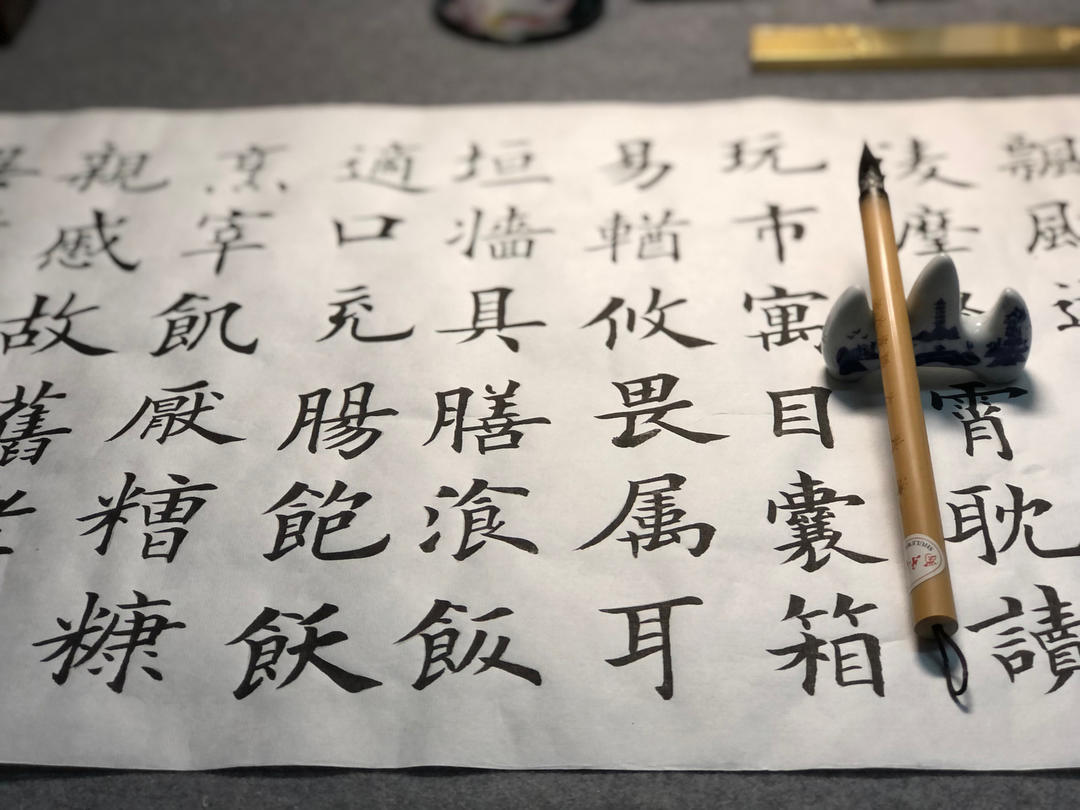 摩霄耽讀
玩市寓目囊箱
易輶攸畏属耳
垣牆具膳飡飯
適口充腸飽飫
烹宰飢厭糟糠
親慼故舊老